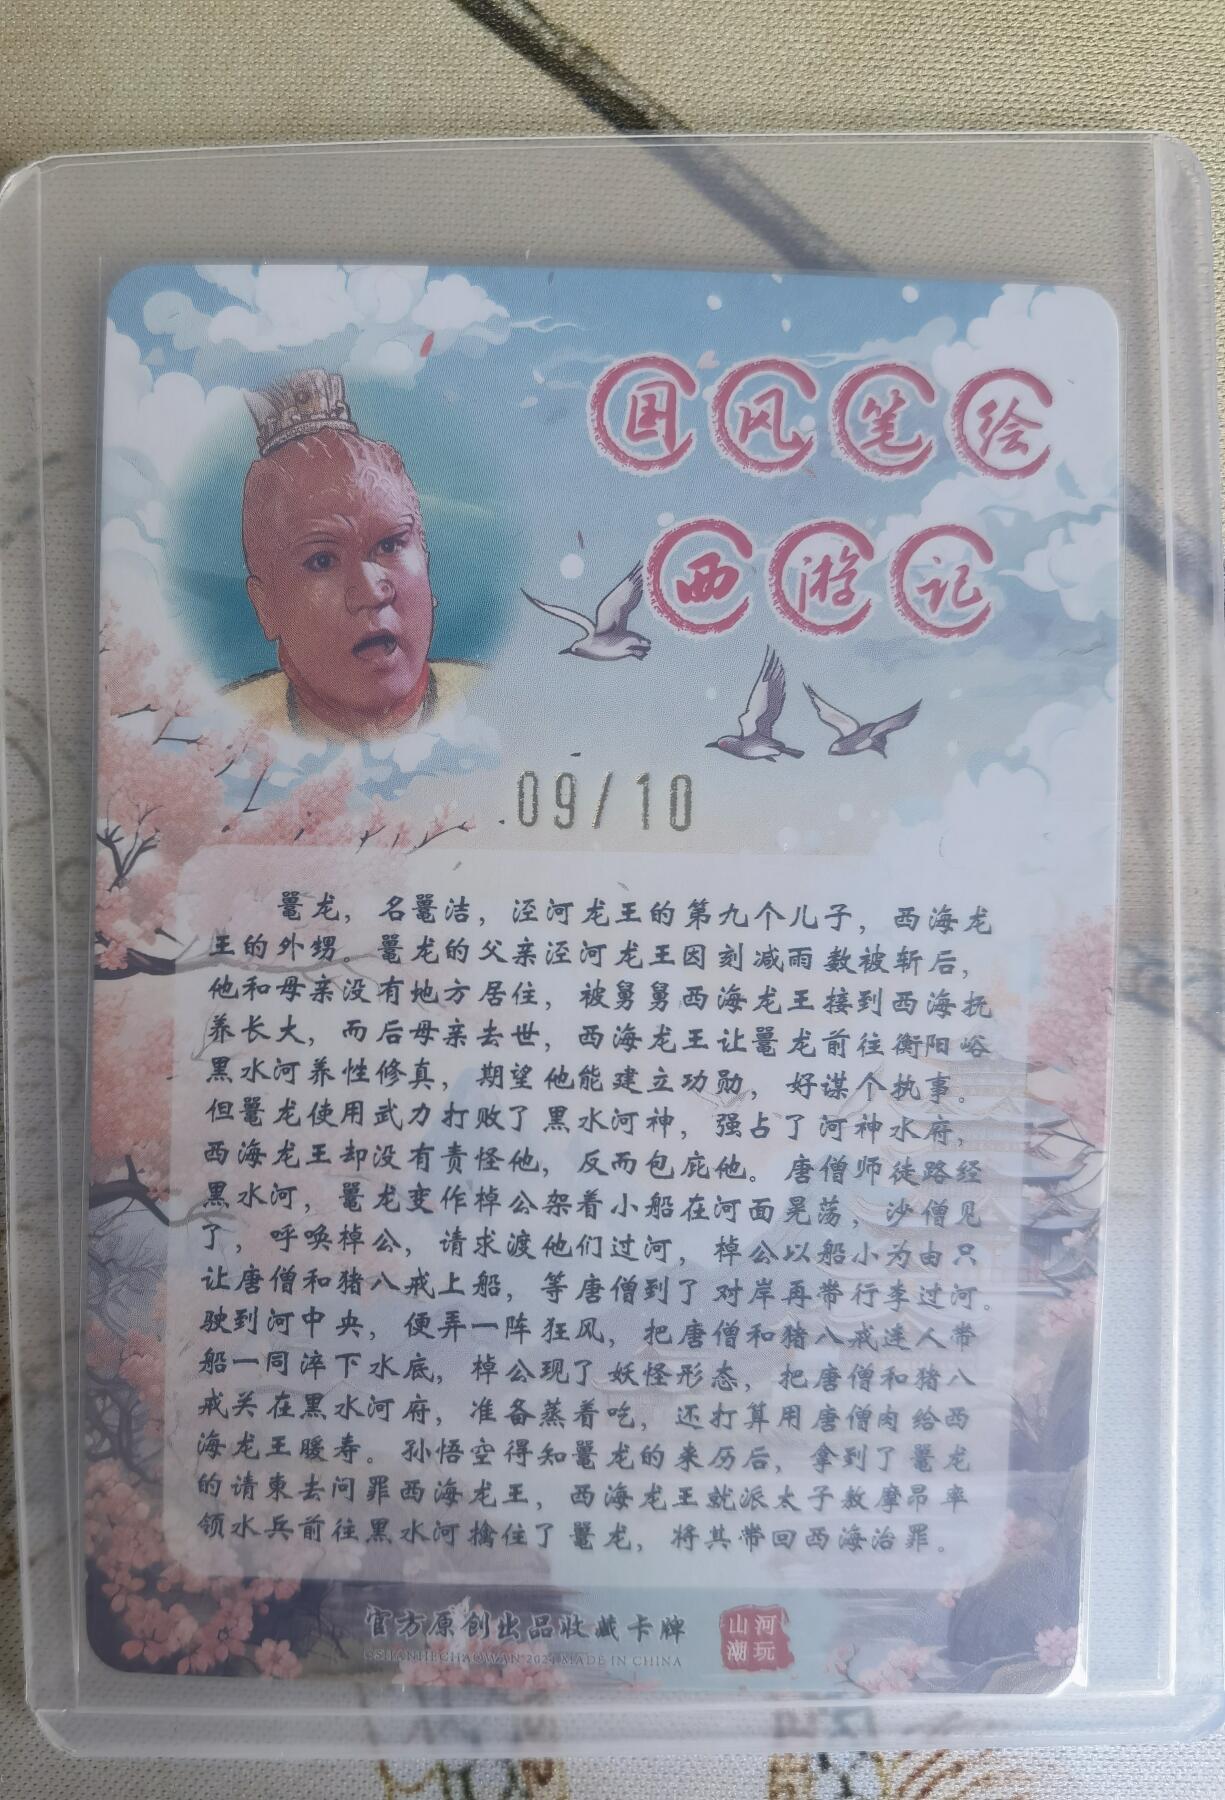 国风笔绘
西游记
09/10
鼍龙，名鼍洁，泾河龙王的第九个儿子，西海龙
王的外甥。鼍龙的父亲泾河龙王因刻减雨数被斩后，
他和母亲没有地方居住，被舅舅西海龙王接到西海抚
养长大，而后母亲去世，西海龙王让鼍龙前往衡阳峪
黑水河养性修真，期望他能建立功勋，好谋个执事。
但鼍龙使用武力打败了黑水河神，强占了河神水府，
西海龙王却没有责怪他，反而包庇他。唐僧师徒路经
黑水河，鼍龙变作棹公架着小船在河面晃荡，沙僧见
了，呼唤棹公，请求渡他们过河，棹公以船小为由只
让唐僧和猪八戒上船，等唐僧到了对岸再带行李过河。
驶到河中央，便弄一阵狂风，把唐僧和猪八戒连人带
船一同淬下水底，棹公现了妖怪形态，把唐僧和猪八
戒关在黑水河府，准备蒸着吃，还打算用唐僧肉给西
海龙王暖寿。孙悟空得知鼍龙的来历后，拿到了鼍龙
的请柬去问罪西海龙王，西海龙王就派太子敖摩昂率
领水兵前往黑水河擒住了鼍龙，将其带回西海治罪。
官方原创出品收藏卡牌
©SHANHECHAOWAN 2024 MADE IN CHINA
山河
潮玩